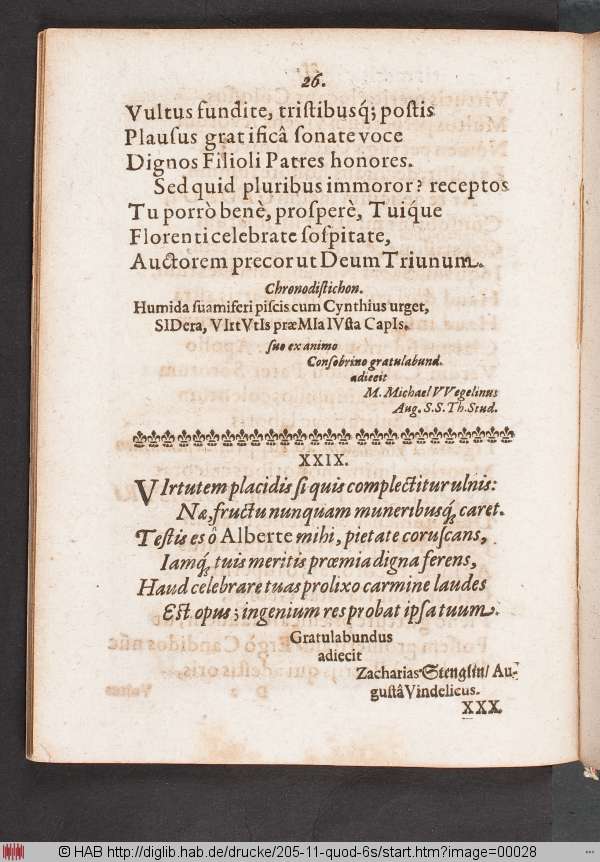 26.
Vultus fundite, tristibusq́; postis
Plausus gratificâ sonate voce
Dignos Filioli Patres honores.
Sed quid pluribus immoror? receptos
Tu porrò benè, prosperè, Tuiq́ue
Florenti celebrate sospitate,
Auctorem precor ut Deum Triunum.
Chronodistichon.
Humida suamiferi piscis cum Cynthius urget,
SIDera, VIrtVtIs præMIa IVsta CapIs.
suo ex animo
Consobrino gratulabund.
adiecit
M. Michael VVegelinus
Aug. S.S. Th. Stud.
XXIX.
VIrtutem placidis si quis complectitur ulnis:
Næ, fructu nunquam muneribusq́; caret.
Testis es ô Alberte mihi, pietate coruscans,
Iamq́; tuis meritis præmia digna ferens,
Haud celebrare tuas prolixo carmine laudes
Est opus; ingenium res probat ipsa tuum.
Gratulabundus
adiecit
Zacharias Stenglin / Au-
gustâ Vindelicus.
XXX.
© HAB http://diglib.hab.de/drucke/205-11-quod-6s/start.htm?image=00028